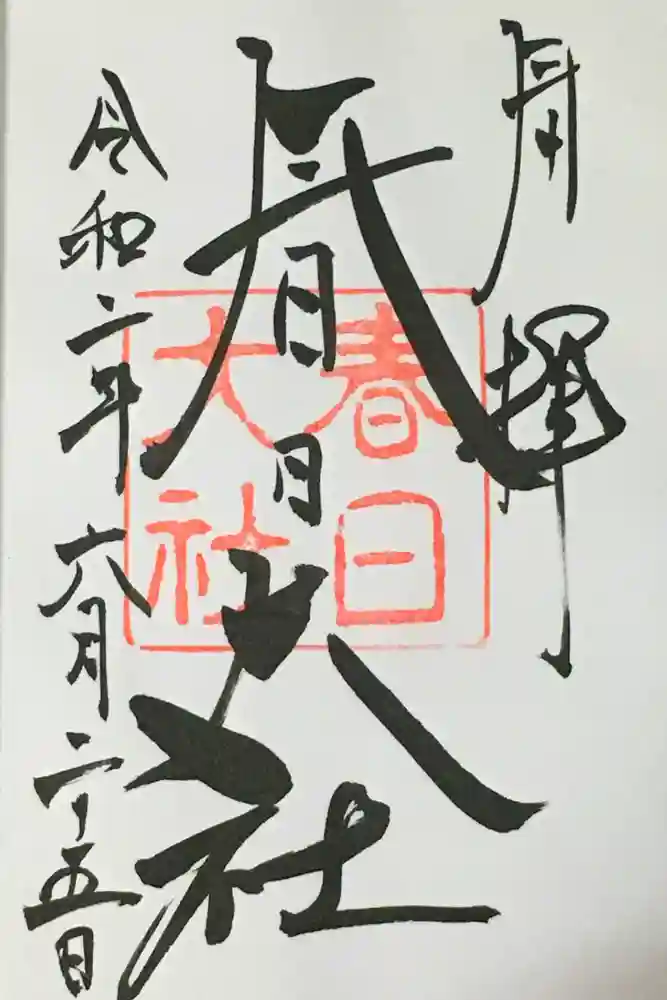 奉拝
春日大社
春日
大社
令和二年六月二十五日